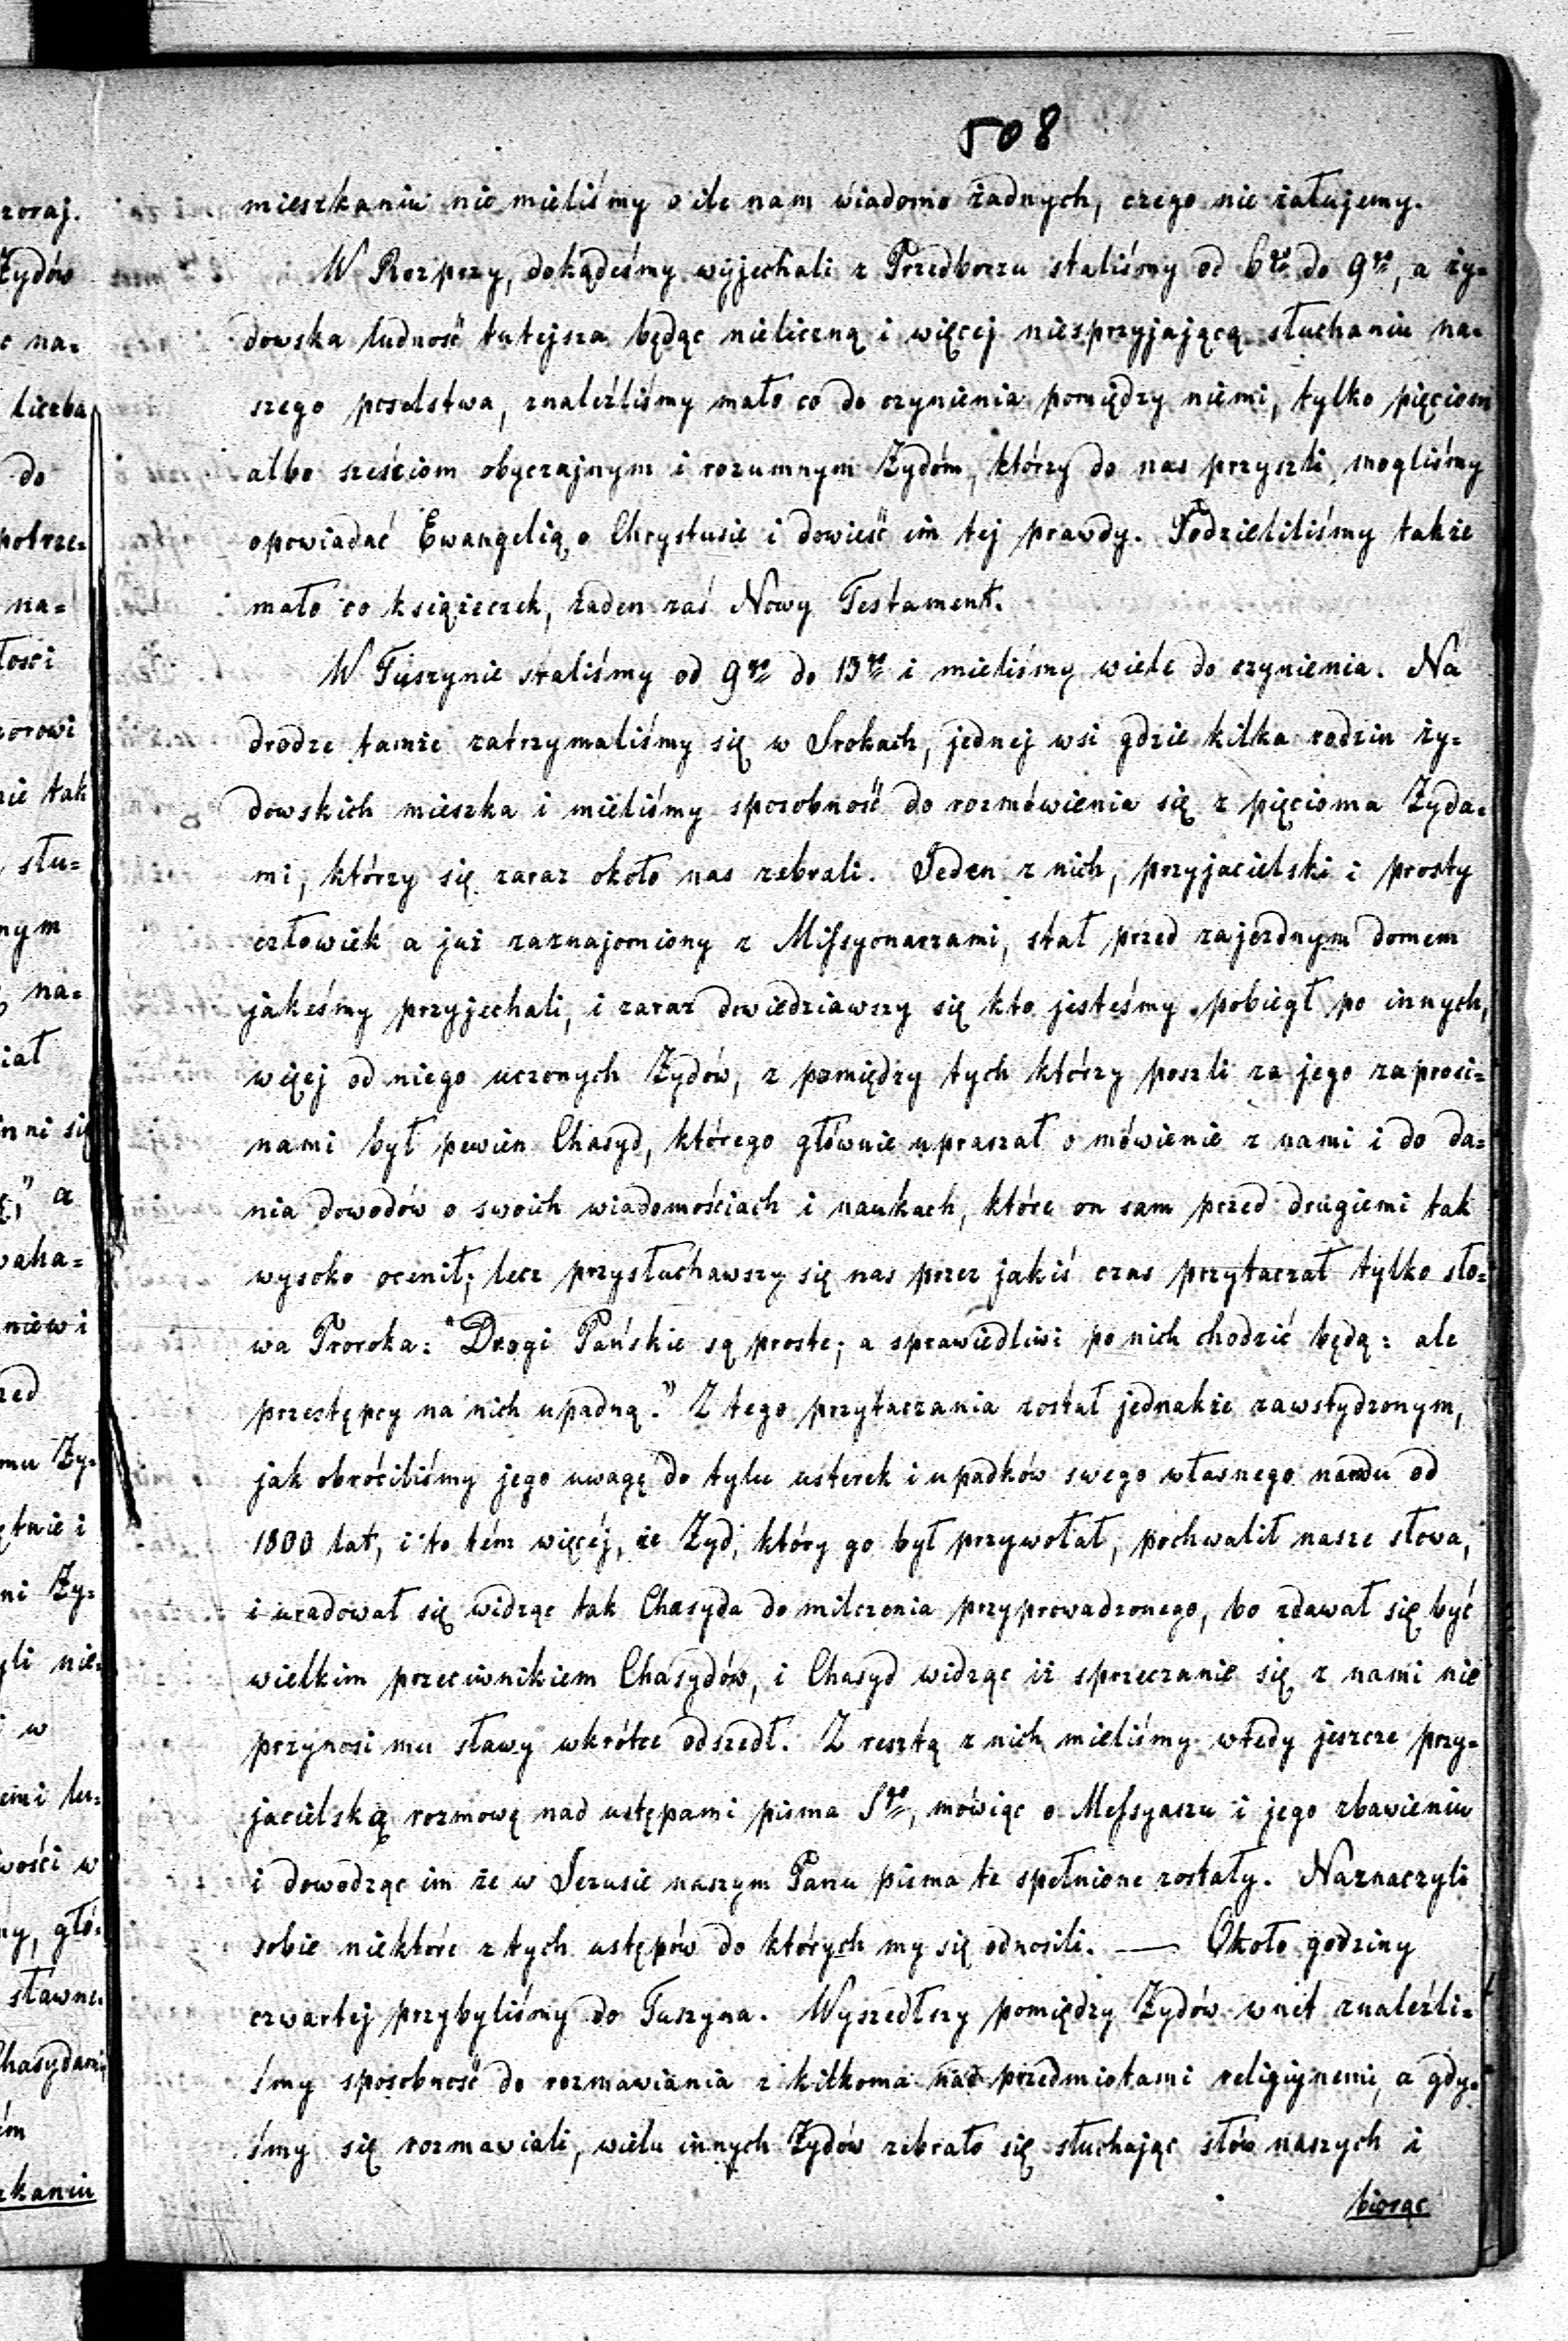 508
mieszkaniu nie mieliśmy o ile nam wiadomo żadnych, czego nie żałujemy.
W Rozprzy, dokądeśmy wyjechali z Przedborzu staliśmy od 6go do 9go, a ży=
dowska ludność tutejsza będąc nieliczną i więcej niesprzyjającą słuchaniu na=
szego poselstwa, znaleźliśmy mało co do czynienia pomiędzy niemi, tylko pięciom
albo sześciom obyczajnym i rozumnym Żydóm, którzy do nas przyszli, mogliśmy
opowiadać Ewangelią o Chrystusie i dowieść im tej prawdy. Podzieliliśmy także
mało co książeczek, żaden zaś Nowy Testament.
W Tuszynie staliśmy od 9go do 13go i mieliśmy wiele do czynienia. Na
drodze tamże zatrzymaliśmy się w Srokach, jednej wsi gdzie kilka rodzin ży=
dowskich mieszka i mieliśmy sposobność do rozmówienia się z pięcioma Żyda=
mi, którzy się zaraz około nas zebrali. Jeden z nich, przyjacielski i prosty
człowiek a już zaznajomiony z Missyonarzami, stał przed zajezdnym domem
jakeśmy przyjechali, i zaraz dowiedziawszy się kto jesteśmy pobiegł po innych,
więcej od niego uczonych Żydów, z pomiędzy tych którzy poszli za jego zaprosi=
nami był pewien Chasyd, którego głównie upraszał o mówienie z nami i do da=
nia dowodów o swoich wiadomościach i naukach, które on sam przed drugiemi tak
wysoko ocenił; lecz przysłuchawszy się nas przez jakiś czas przytaczał tylko sło=
wa Proroka: "Drogi Pańskie są proste; a sprawiedliwi po nich chodzić będą: ale
przestępcy na nich upadną." Z tego przytaczania został jednakże zawstydzonym,
jak obróciliśmy jego uwagę do tylu usterek i upadków swego własnego narodu od
1800 lat, i to tém więcéj, że Żyd, który go był przywołał, pochwalił nasze słowa,
i uradował się widząc tak Chasyda do milczenia przyprowadzonego, bo zdawał się być
wielkim przeciwnikiem Chasydów, i Chasyd widząc iż sprzeczanie się z nami nie
przynosi mu sławy wkrótce odszedł. Z resztą z nich mieliśmy wtedy jeszcze przy=
jacielską rozmowę nad ustępami pisma Sgo, mówiąc o Messyaszu i jego zbawieniu
i dowodząc im że w Jezusie naszym Panu pisma te spełnione zostały. Naznaczyli
sobie niektóre z tych ustępów do których my się odnosili. — Około godziny
czwartej przybyliśmy do Tuszyna. Wyszedłszy pomiędzy Żydów wnet znaleźli=
śmy sposobność do rozmawiania z kilkoma nad przedmiotami religijnemi, a gdy=
śmy się rozmawiali, wielu innych Żydów zebrało się słuchając słów naszych i
biorąc